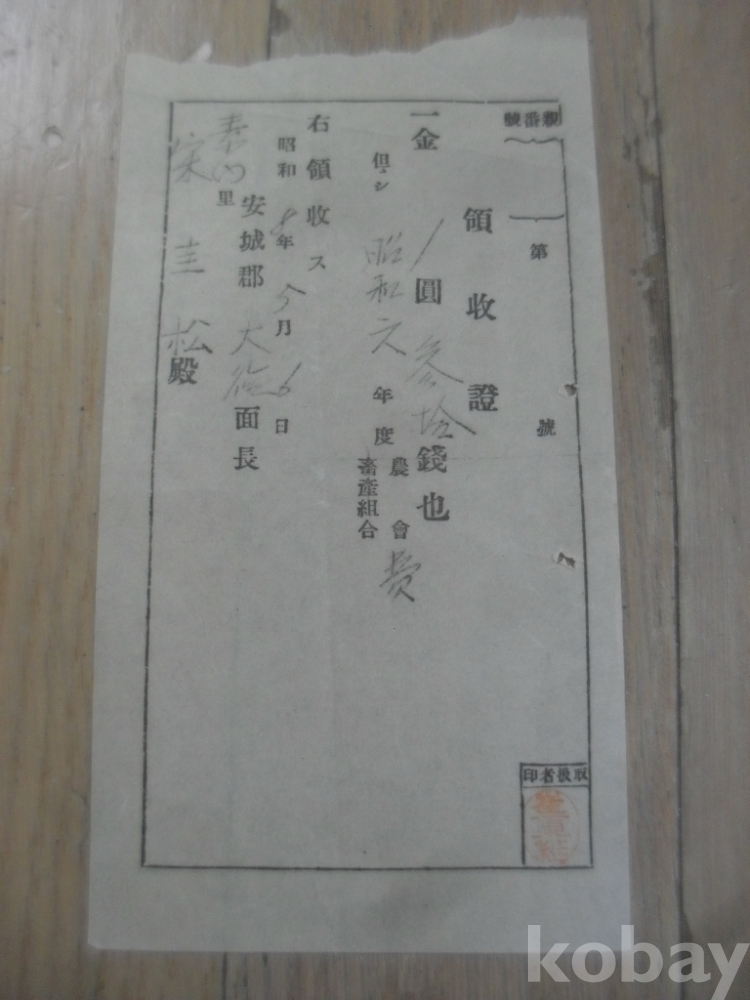 親番號
第 號
領收證
一金 1圓參拾錢也
但シ 昭和六年度農會畜產組合費
右領收ス
昭和8年5月6日
安城郡大德面長
里
宋圭松殿
取扱者印
kobay